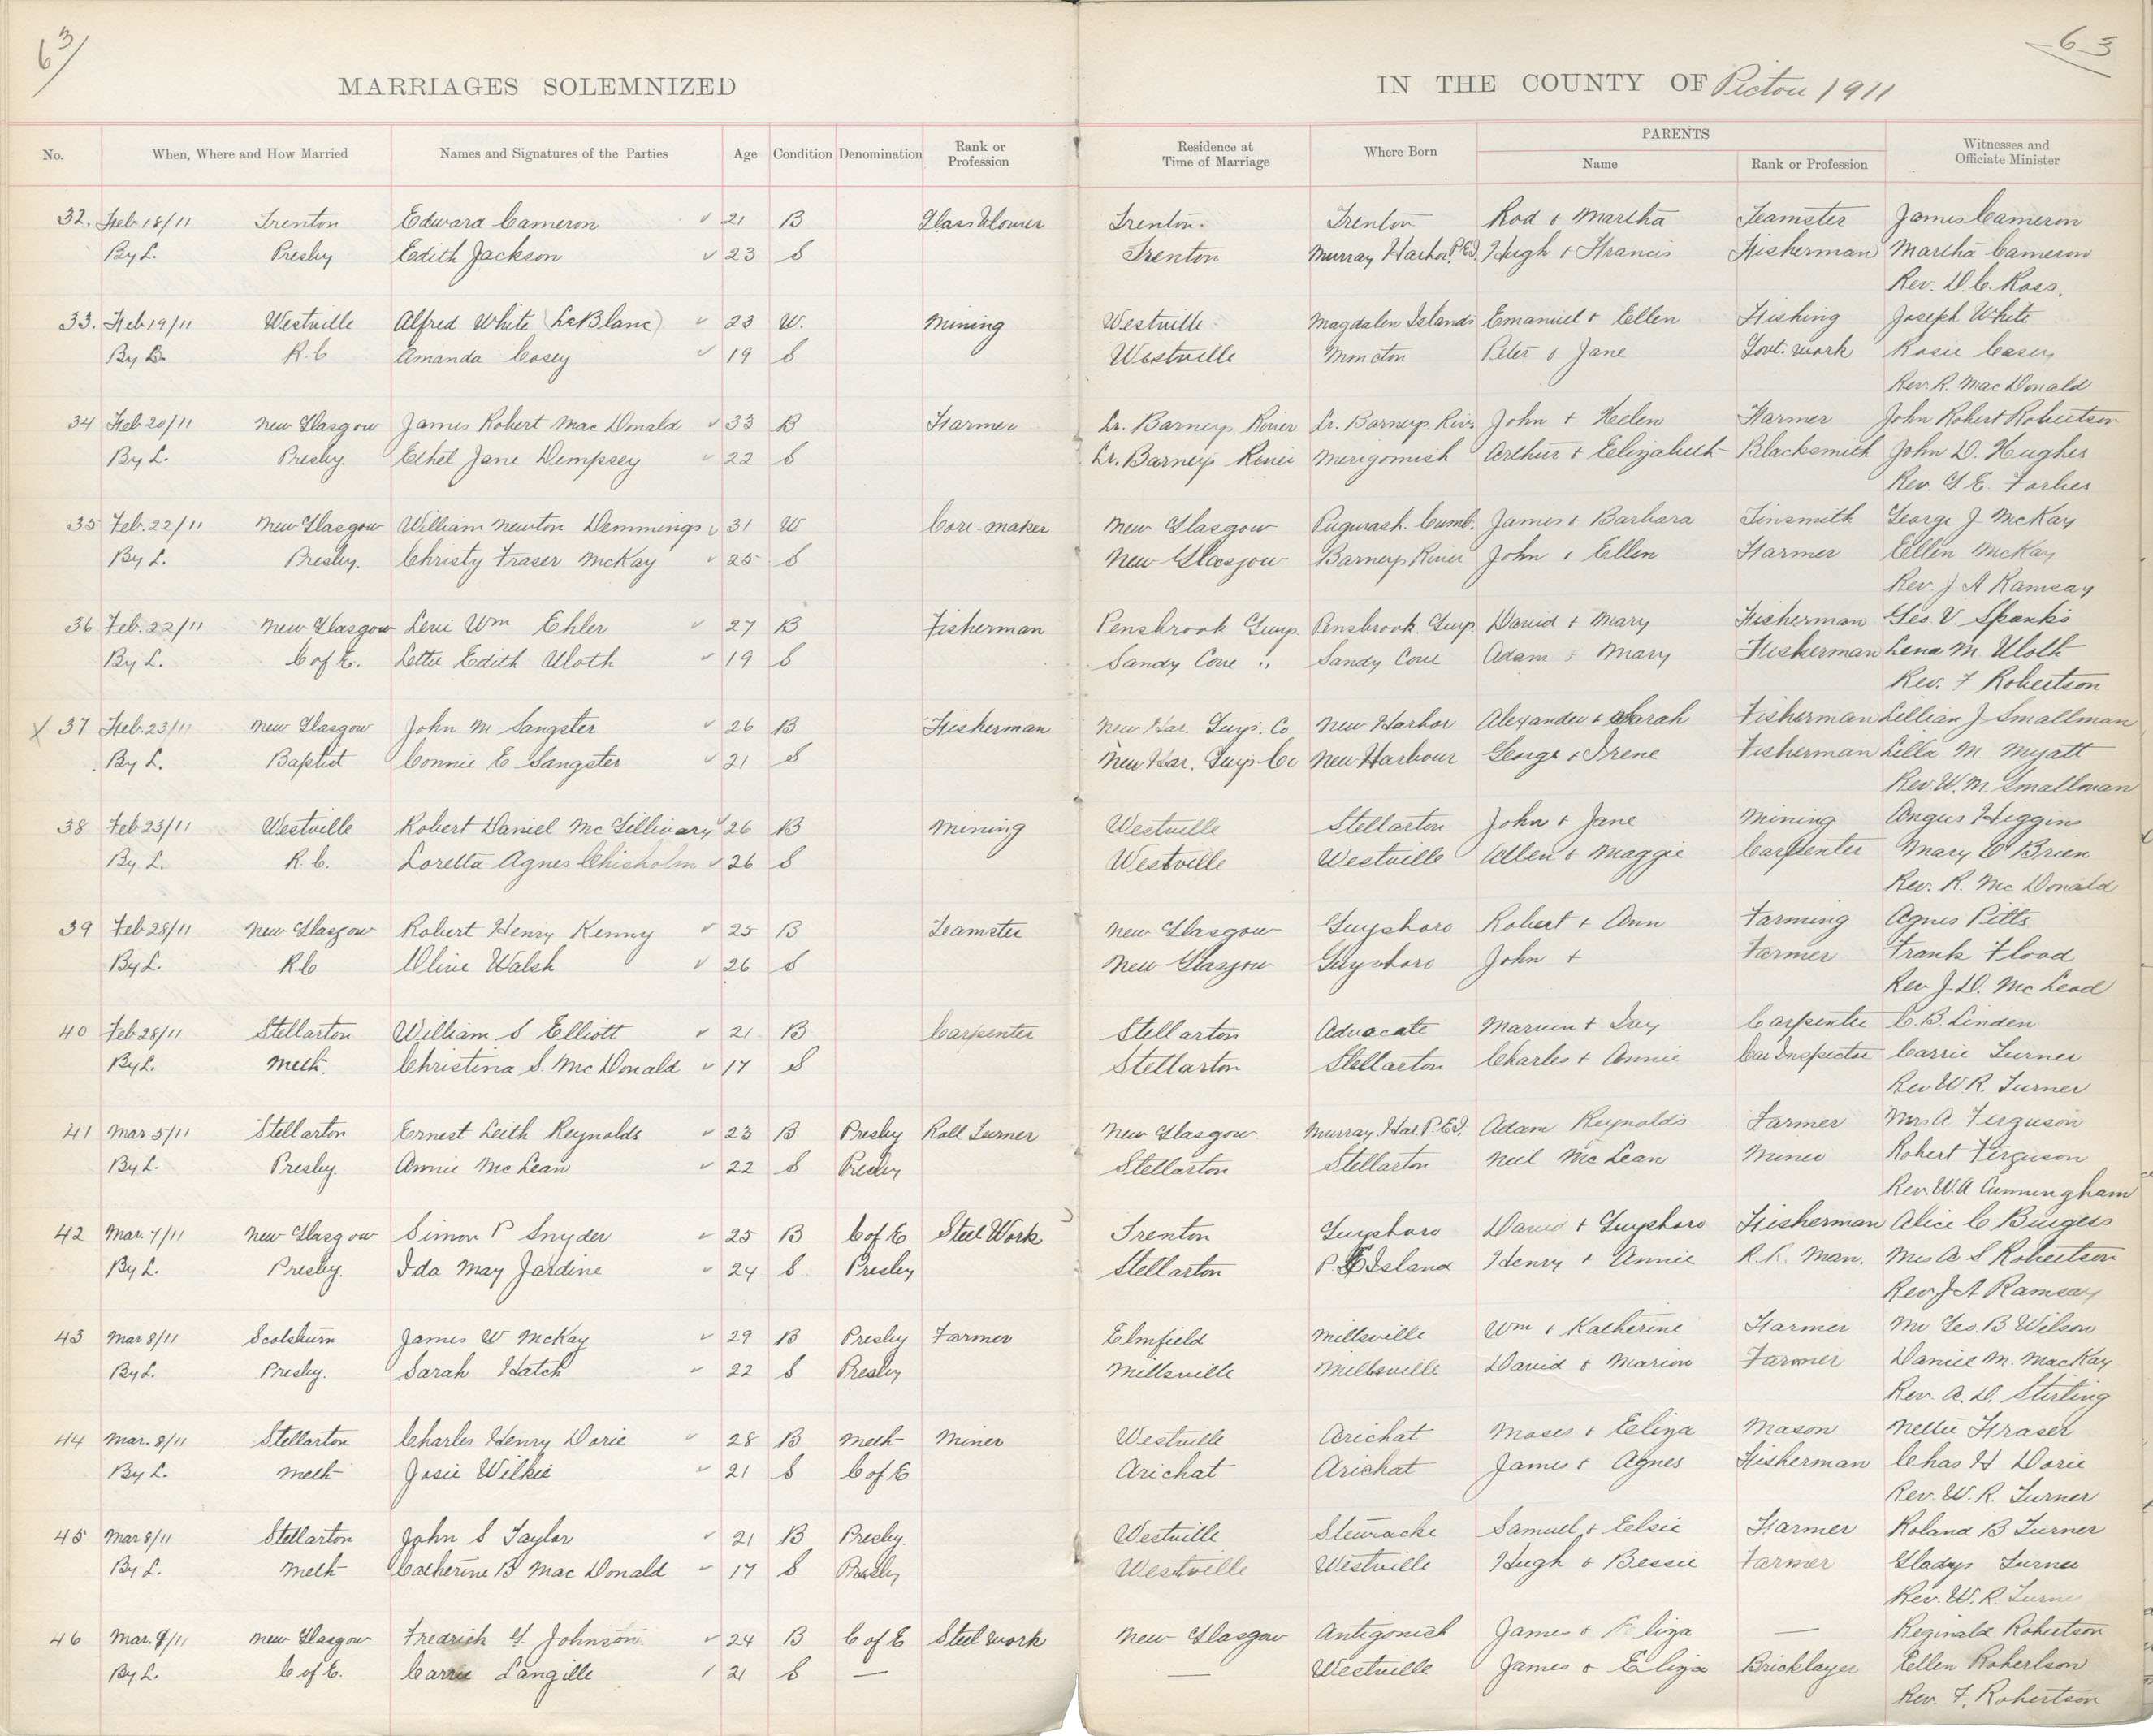 63
63
MARRIAGES SOLEMNIZED IN THE COUNTY OF Pictou 1911
No. When, Where and How Married Names and Signatures of the Parties Age Condition Denomination Rank or Profession Residence at Time of Marriage Where Born PARENTS Name Rank or Profession Witnesses and Officiate Minister
32. Feb 18/11 Trenton Edward Cameron 21 B Glass blower Trenton Trenton Rod & Martha Teamster James Cameron
By L. Presby Edith Jackson 23 S Trenton Murray Harbor P.E.I. Hugh & Francis Fisherman Martha Cameron
Rev. D.C. Ross.
33. Feb 19/11 Westville Alfred White (LeBlanc) 23 W. Mining Westville Magdalen Islands Emanuel & Ellen Fishing Joseph White
By B. R.C Amanda Casey 19 S Westville Moncton Peter & Jane Govt. work Rosie Casey
Rev. R. MacDonald
34 Feb 20/11 New Glasgow James Robert MacDonald 33 B Farmer Lr. Barneys River Lr. Barneys Riv. John & Helen Farmer John Robert Robertson
By L. Presby. Ethel Jane Dempsey 22 S Lr. Barneys River Merigomish Arthur & Elizabeth Blacksmith John D. Hughes
Rev. G E. Forbes
35 Feb. 22/11 New Glasgow William Newton Demmings 31 W Core-maker New Glasgow Pugwash. Cumb. James & Barbara Tinsmith George J McKay
By L. Presby. Christy Fraser McKay 25 S New Glasgow Barneys River John & Ellen Farmer Ellen McKay
Rev. J. A Ramsay
36 Feb. 22/11 New Glasgow Levi Wm Ehler 27 B Fisherman Pensbrook Guyp. Pensbrook Guyp David & Mary Fisherman Geo. V. Spanks
By L. C of E. Lettie Edith Uloth 19 S Sandy Cove " Sandy Cove Adam & Mary Fisherman Lena M. Uloth
Rev. F Robertson
X 37 Feb. 23/11 New Glasgow John M Sangster 26 B Fisherman New Har. Guys. Co New Harbor Alexander & Sarah Fisherman Lillian J Smallman
By L. Baptist Connie E Sangster 21 S New Har. Guys Co New Harbour George & Irene Fisherman Lilla M. Myatt
Rev. W. M. Smallman
38 Feb 23/11 Westville Robert Daniel McGillivary 26 B Mining Westville Stellarton John & Jane Mining Angus Higgins
By L. R.C. Loretta Agnes Chisholm 26 S Westville Westville Allen & Maggie Carpenter Mary O'Brien
Rev. R. McDonald
39 Feb 28/11 New Glasgow Robert Henry Kenny 25 B Teamster New Glasgow Guysboro Robert & Ann Farming Agnes Pitts
By L. R.C Olive Walsh 26 S New Glasgow Guysboro John & Farmer Frank Flood
Rev J. D. McLeod
40 Feb 28/11 Stellarton William S Elliott 21 B Carpenter Stellarton Advocate Marvin & Ivy Carpenter C. B. Linden
By L. Meth. Christina S. McDonald 17 S Stellarton Stellarton Charles & Annie Car Inspector Carrie Turner
Rev W R. Turner
41 Mar 5/11 Stellarton Ernest Leith Reynolds 23 B Presby Roll Turner New Glasgow Murray Har. P.E.I. Adam Reynolds Farmer Mrs A Ferguson
By L. Presby. Annie McLean 22 S Presby Stellarton Stellarton Neil McLean Miner Robert Ferguson
Rev. W.A Cunningham
42 Mar. 7/11 New Glasgow Simon P Snyder 25 B C of E Steel Work Trenton Guysboro David & Guysboro Fisherman Alice C Burgess
By L. Presby. Ida May Jardine 24 S Presby Stellarton P.E Island Henry & Annie R.R. Man. Mrs A S Robertson
Rev J A Ramsay
43 Mar 8/11 Scotsburn James W McKay 29 B Presby Farmer Elmfield Millsville Wm & Katherine Farmer Mr Geo. B Wilson
By L. Presby. Sarah Hatch 22 S Presby Millsville Millsville David & Marion Farmer Daniel M. MacKay
Rev. A. D. Stirling
44 Mar. 8/11 Stellarton Charles Henry Dorie 28 B Meth Miner Westville Arichat Moses & Eliza Mason Nellie Fraser
By L. Meth Josie Wilkie 21 S C of E Arichat Arichat James & Agnes Fisherman Chas H Dorie
Rev. W. R. Turner
45 Mar 8/11 Stellarton John S Taylor 21 B Presby. Westville Samuel & Elsie Farmer Roland B Turner
By L. Meth Catherine B MacDonald 17 S Presby Westville Westville Hugh & Bessie Farmer Gladys Turner
Rev. W. R. Turne
46 Mar. 9/11 New Glasgow Fredrick G. Johnson 24 B C of E Steel work New Glasgow Antigonish James & Eliza — Reginald Robertson
By L. C of E. Carrie Langille 21 S — — Westville James & Eliza Bricklayer Ellen Robertson
Rev. F. Robertson